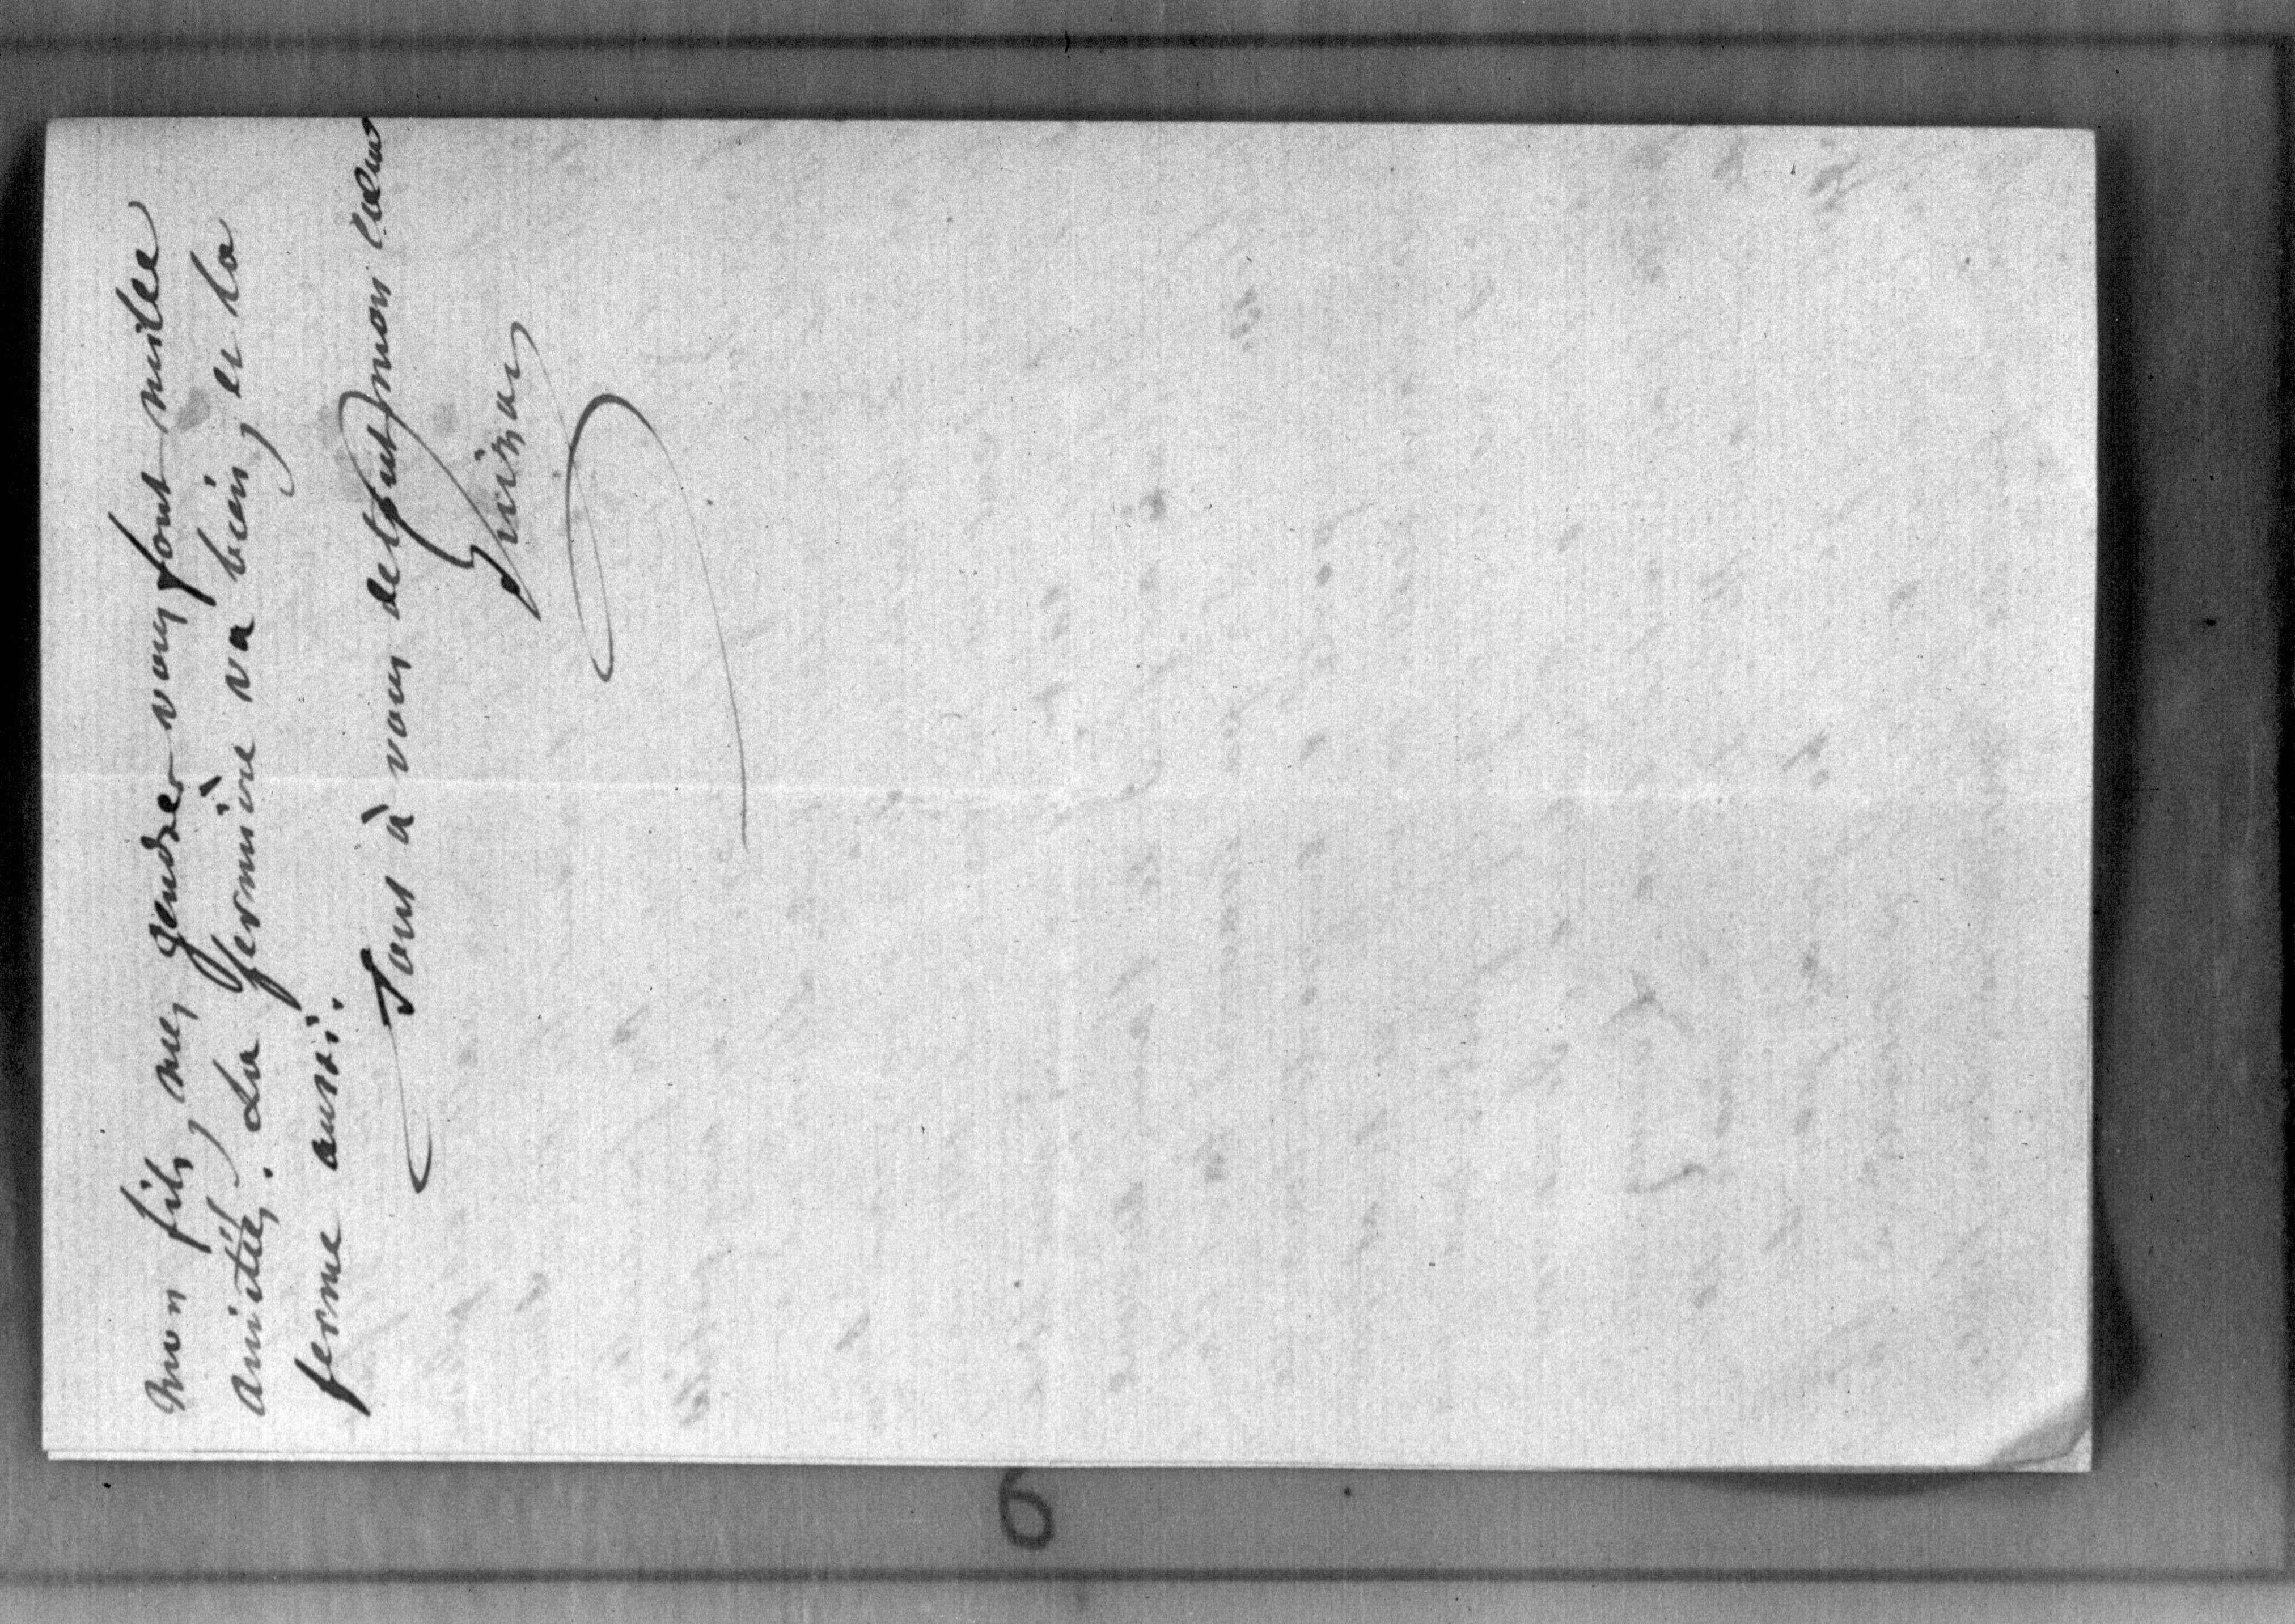 mon fils, mes gendres vous font mille
amitiés. La fermière va bien, et la
ferme aussi.
Tout à vous de tout mon cœur
Guizot
6